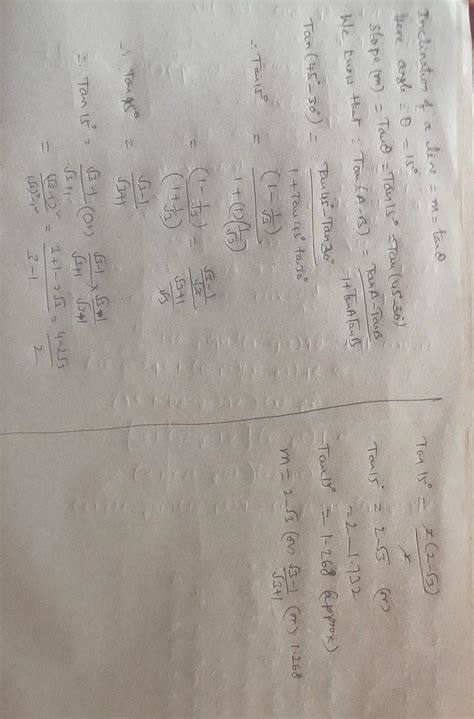 Inclination of a line = m = tanθ
Here angle = θ = 15°
Slope (m) = Tanθ = Tan15° = Tan(45-30)
We know that : Tan(A-B) = TanA-TanB / 1+TanATanB
Tan(45-30°) = Tan45-Tan30° / 1+Tan45°tan30°
∴ Tan15° = (1-1/√3) / 1+(1)(1/√3)
= (1-1/√3) / (1+1/√3) = √3-1/√3 / √3+1/√3
∴ Tan15° = √3-1 / √3+1
∴ Tan15° = √3-1/√3+1 (or) √3-1/√3+1 × √3-1/√3-1
= (√3-1)² / (√3)²-1² = 3+1-2√3 / 3-1 = 4-2√3 / 2
Tan15° = 2(2-√3) / 2
Tan15° = 2-√3 (or)
= 2-1.732
Tan15° = 1.268 (approx)
m = 2-√3 (or) √3-1/√3+1 (or) 1.268